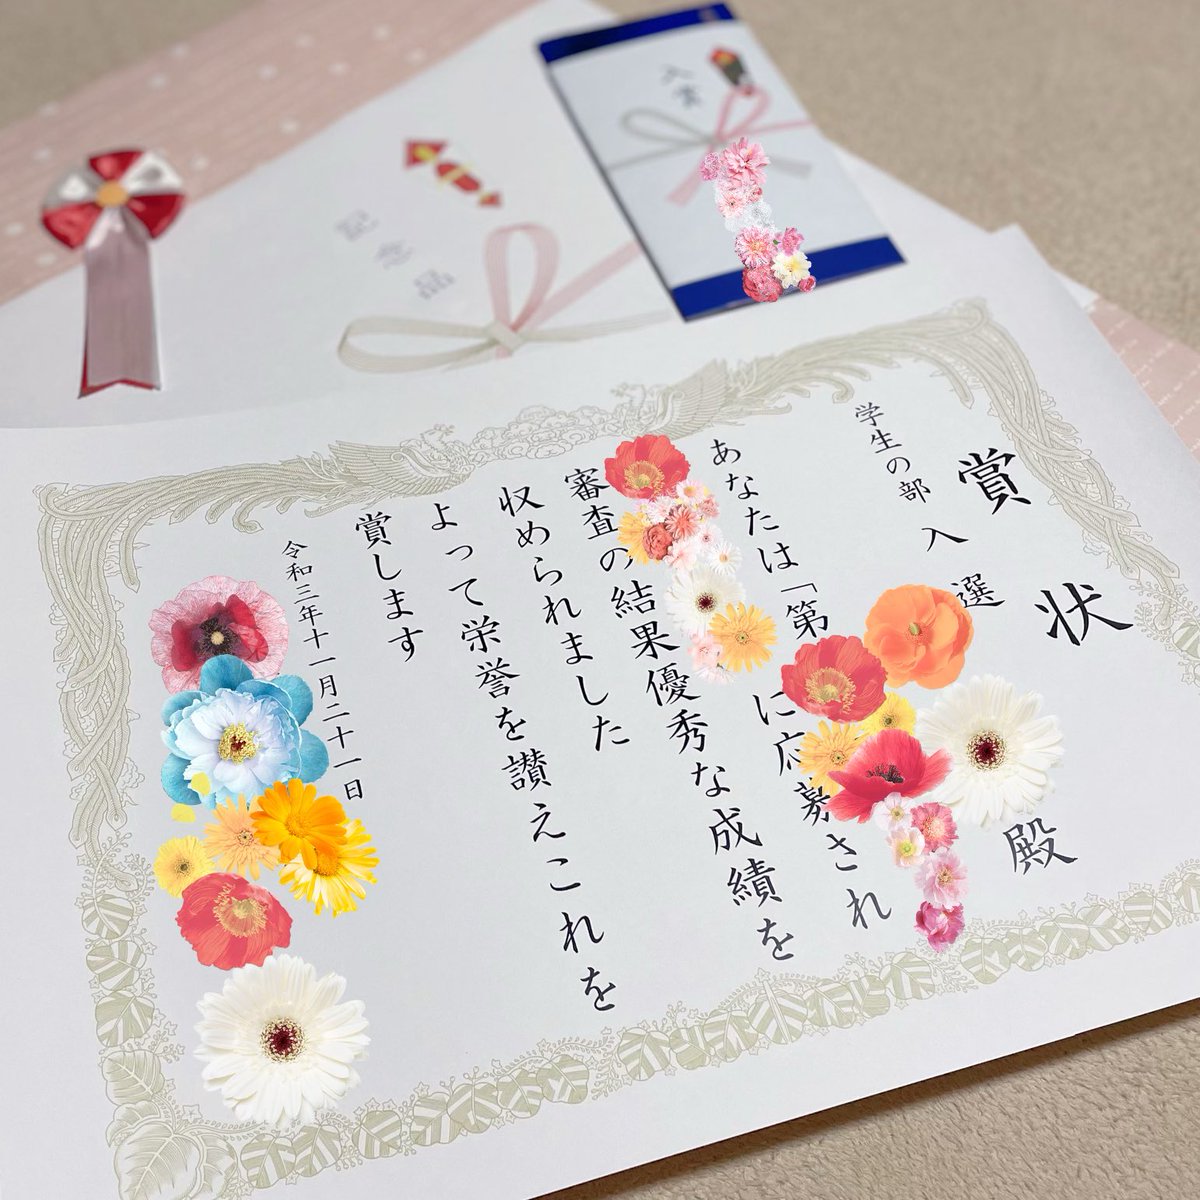 入賞
記念品
賞状
学生の部 入選
殿
あなたは「第
に応募され
審査の結果優秀な成績を
収められました
よって栄誉を讃えこれを
賞します
令和三年十一月二十一日